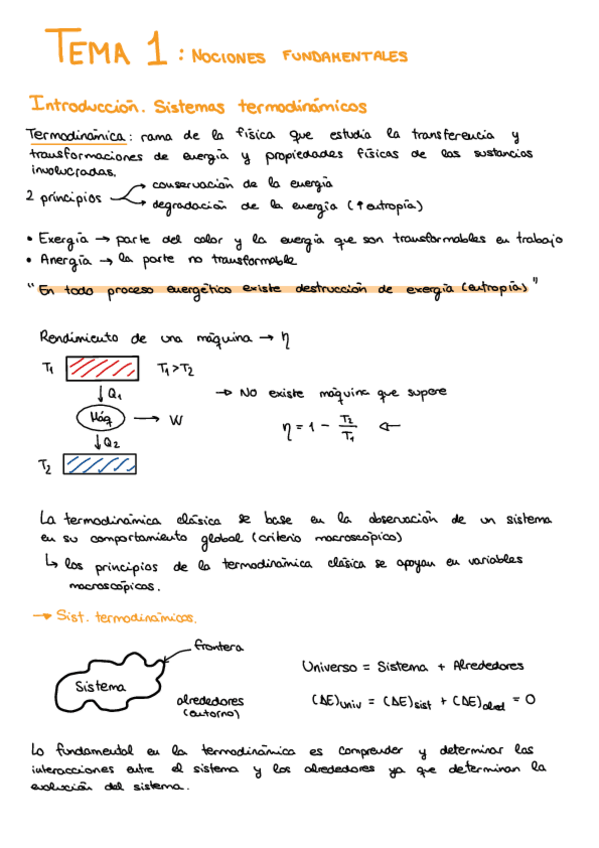 TEMA 1 : NOCIONES FUNDAMENTALES
Introducción. Sistemas termodinámicos
Termodinámica: rama de la física que estudia la transferencia y
transformaciones de energía y propiedades físicas de las sustancias
involucradas.
2 principios
conservación de la energía
degradación de la energía (↑entropía)
• Exergía → parte del calor y la energía que son transformables en trabajo
• Anergía → la parte no transformable
"En todo proceso energético existe destrucción de exergía (entropía)"
Rendimiento de una máquina → η
T₁ T₁>T₂
↓Q₁
Máq → W
↓Q₂
T₂
→ No existe máquina que supere
η = 1 - T₂/T₁ ←
La termodinámica clásica se base en la observación de un sistema
en su comportamiento global (criterio macroscópico)
↳ los principios de la termodinámica clásica se apoyan en variables
macroscópicas.
→ Sist. termodinámicos.
frontera
Sistema
alrededores
(entorno)
Universo = Sistema + Alrededores
(ΔE)univ = (ΔE)sist + (ΔE)alred = 0
Lo fundamental en la termodinámica es comprender y determinar las
interacciones entre el sistema y los alrededores ya que determinan la
evolución del sistema.